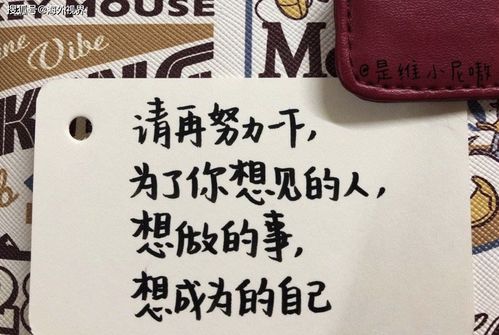 搜狐号@海外视界
HOUSE
Vibe
@是维小尼嗷
请再努力一下，
为了你想见的人，
想做的事，
想成为的自己